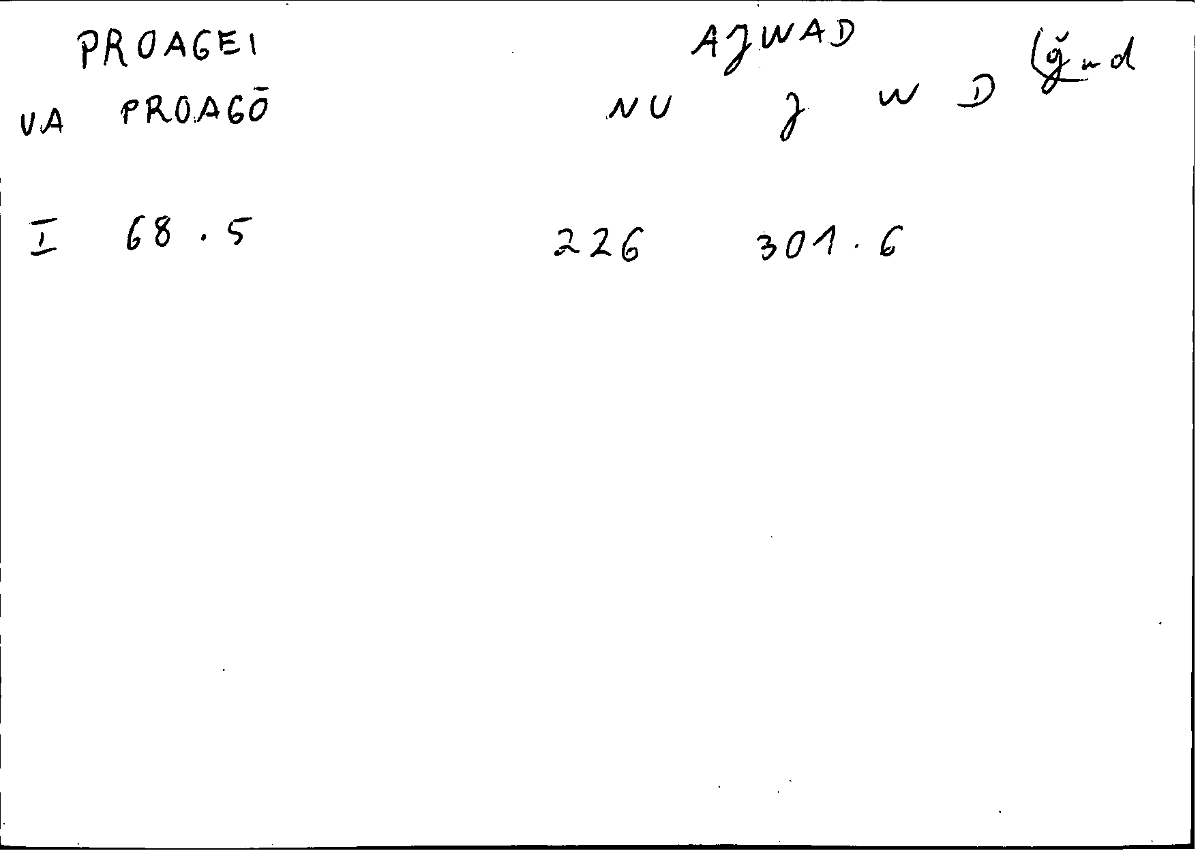 PROAGEI AJWAD
VA PROAGŌ NU J W D (ğwd
I 68.5 226 301.6